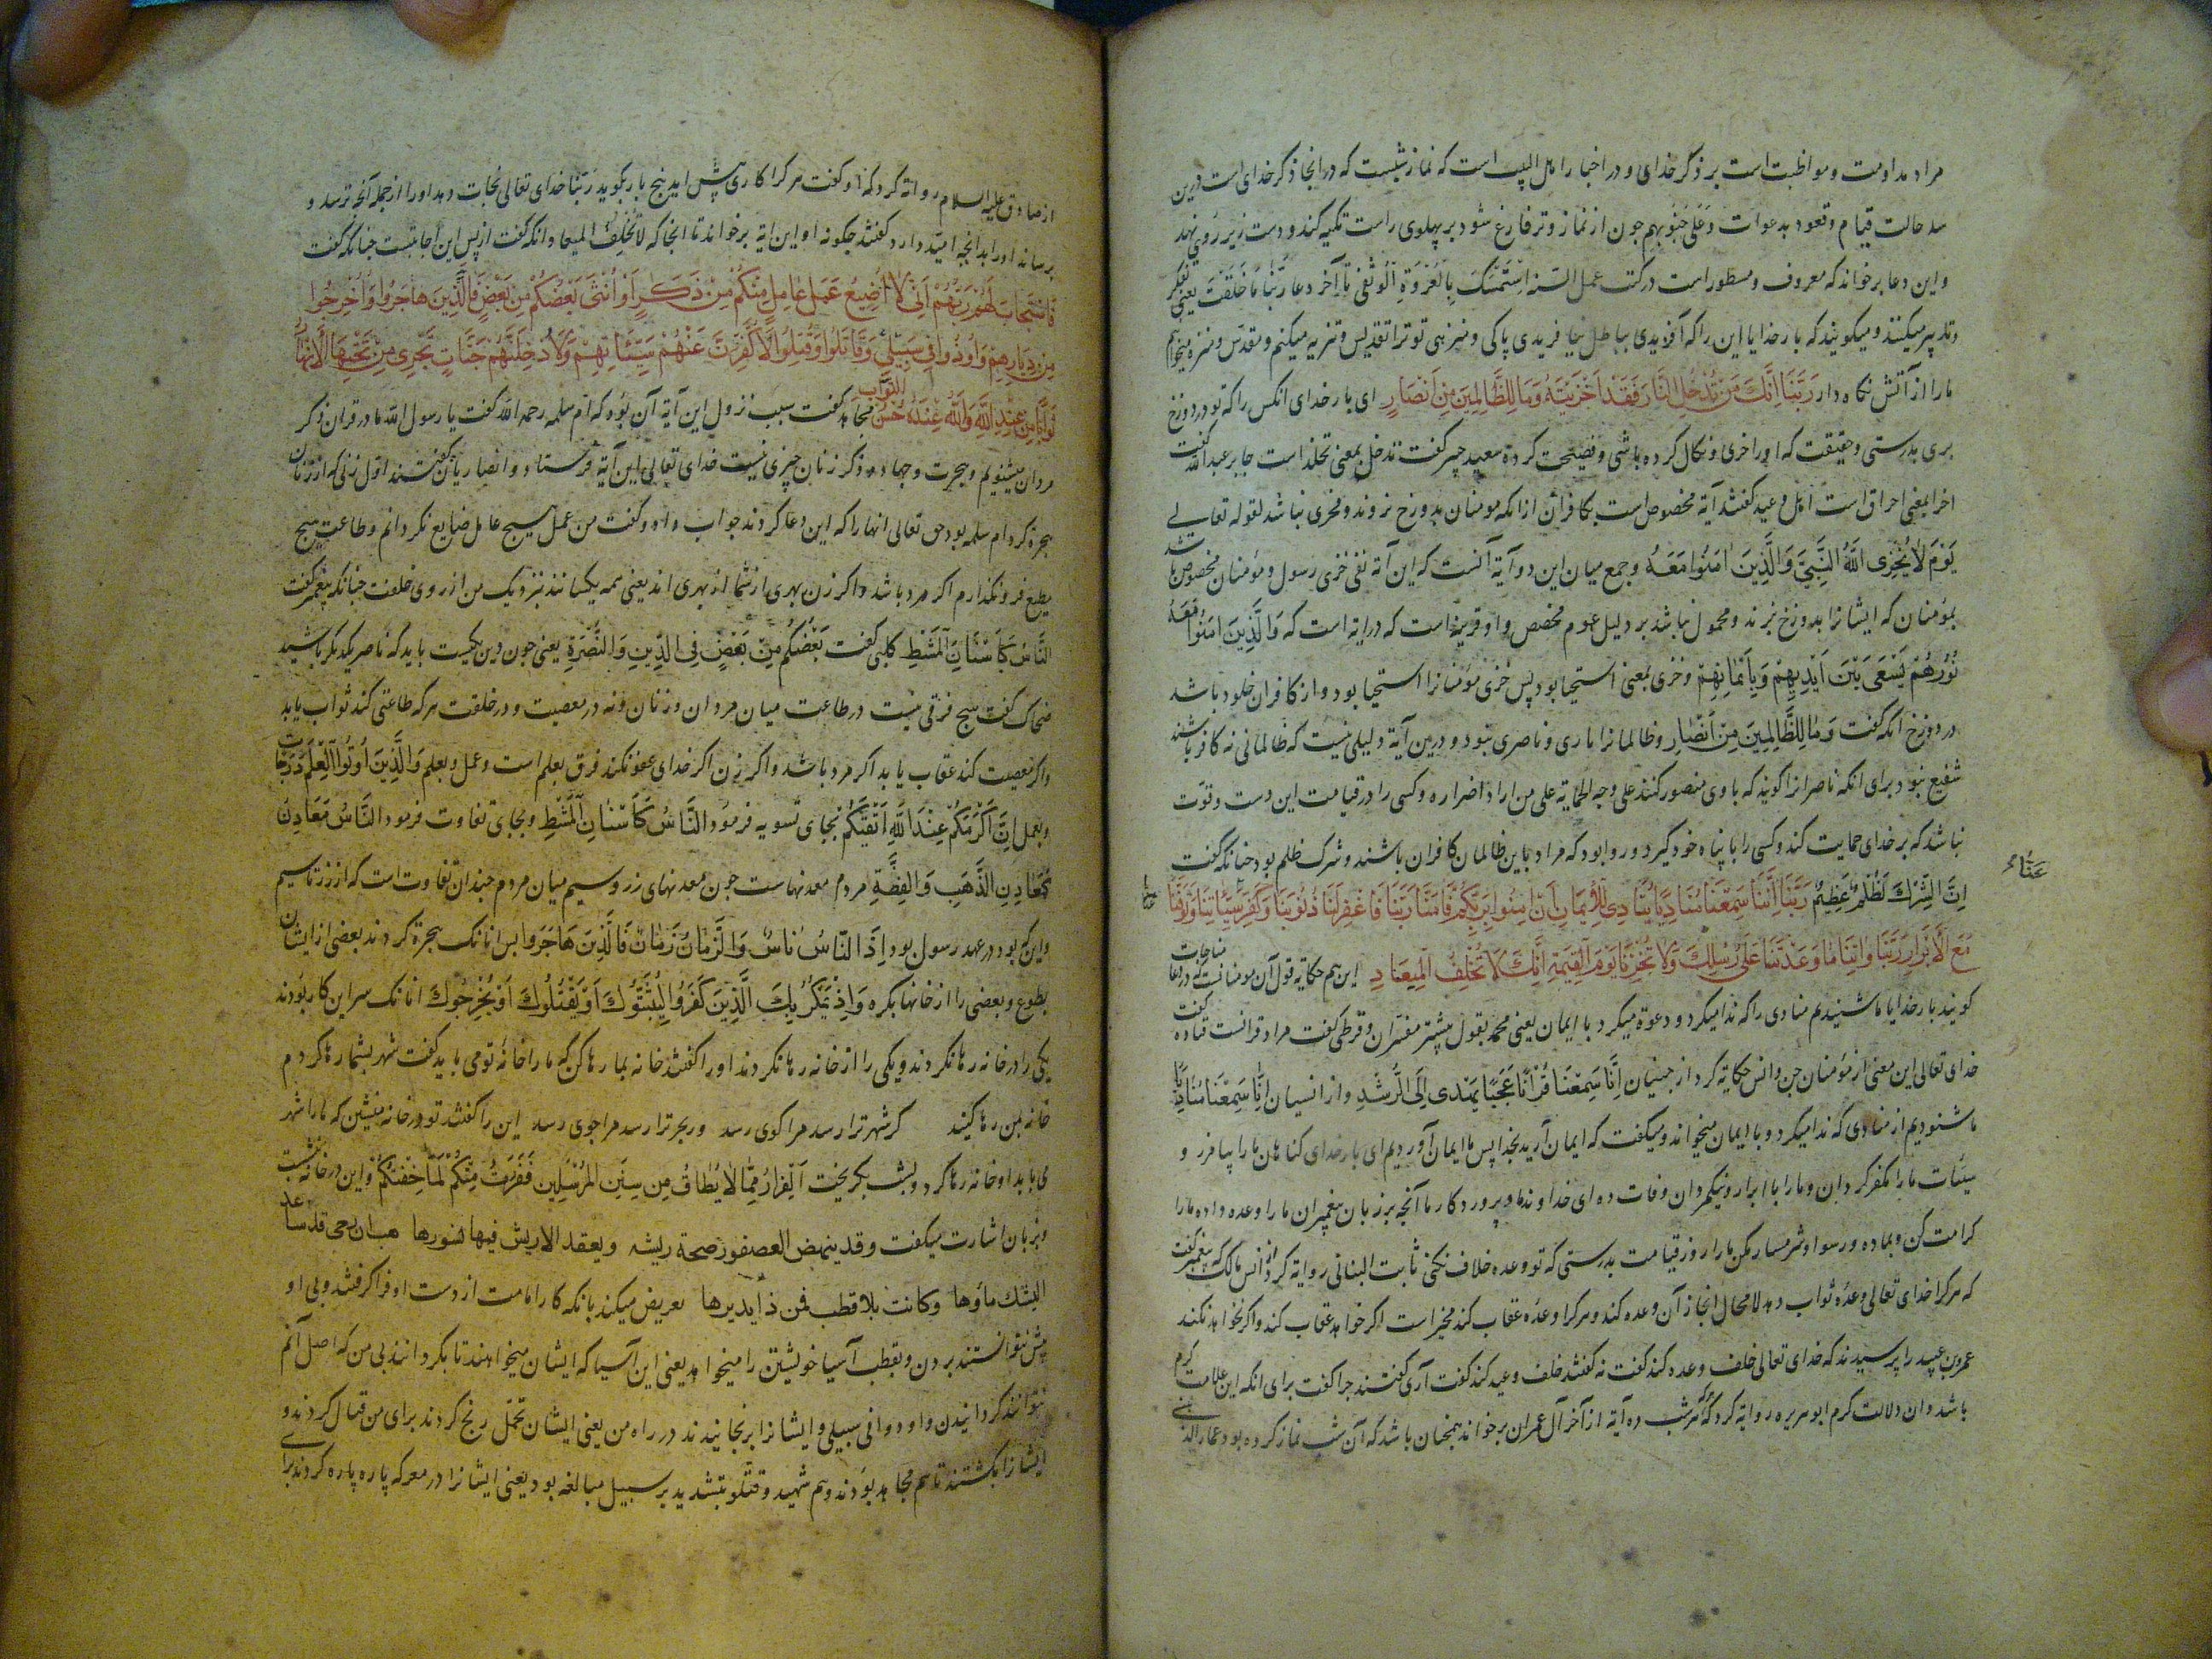 مراد مداومت و مواظبت است بر ذکر خدای و در اخبار اهل البیت است که نماز شبست که در انجا ذکر خدای است درین
سه حالت قیام و قعود بدعوات وَعَلیٰ جُنُوبِهِم جون از نماز وتر فارغ شود بر پهلوی راست تکیه کند و دست زیر روی نهد
و این دعا برخواند که معروف و مسطور است در کتب عمل السنه اِسْتَمْسَکتُ بِالْعُرْوَةِ الْوُثْقٰی تا آخر دعا رَبَّنا مَا خَلَقْتَ یعنی تفکر
و تدبیر میکنند و میکویند که بار خدایا این را که آفریدی بباطل نیافریدی پاکی و منزهی تو ترا تقدیس و تنزیه میکنم و مقدس و منزه میخوانیم
ما را از آتش نکاه دار رَبَّنَا اِنَّکَ مَنْ تُدْخِلِ النَّارَ فَقَدْ اَخْزَیْتَهُ وَمَا لِلظَّالِمینَ مِنْ اَنْصَارٍ ای بار خدای انکس را که تو در دوزخ
بری بدرستی و حقیقت که او را خزی و نکال کرده باشی و فضیحت کرده سعید جبیر کفت تدخل بمعنی تخلد است جابر عبد الله کفت
اخزا بمعنی احراق است اهل وعید کفتند آیة مخصوص است بکافران از انکه مومنان بدوزخ نروند و مخزی نباشد لقوله تعالی
یَوْمَ لَا یُخْزِی اللّٰهُ النَّبِیَّ وَالَّذِینَ اٰمَنُوا مَعَهُ و جمع میان این دو آیة آنست که این آیة نفی خزی رسول و مؤمنان مخصوص باشد
بمؤمنان که ایشانرا بدوزخ نبرند و محمول نباشد بر دلیل عموم مخصص و او قرینه است که در ایه است که وَالَّذِینَ اٰمَنُوا مَعَهُ
نُورُهُمْ یَسْعٰی بَیْنَ اَیْدِیهِمْ وَبِاَیْمَانِهِمْ و خزی بمعنی استحیا بود پس خزی مؤمنانرا استحیا بود و از کافران خلود باشد
در دوزخ انکه کفت وَمَا لِلظَّالِمِینَ مِنْ اَنْصَارٍ و ظالمانرا یاری و ناصری نبود و درین آیة دلیلی نیست که ظالمانی نه کافر باشند
شفیع نبود برای انکه ناصر انرا کویند که با وی منصور کنند علی وجه الحمایة علی من اراد اضراره و کسی را در قیامت این دست و قوت
نباشد که بر خدای حمایت کند و کسی را با پناه خود کیرد و روا بود که مراد باین ظالمان کافران باشند و شرک ظلم بود چنانکه کفت
اِنَّ الشِّرْکَ لَظُلْمٌ عَظِیمٌ رَبَّنَا اِنَّنَا سَمِعْنَا مُنَادِیًا یُنَادِی لِلْاِیمَانِ اَنْ اٰمِنُوا بِرَبِّکُمْ فَاٰمَنَّا رَبَّنَا فَاغْفِرْ لَنَا ذُنُوبَنَا وَکَفِّرْ سَیِّئَاتِنَا وَتَوَفَّنَا
عَنَّا
مَعَ الْاَبْرَارِ رَبَّنَا وَاٰتِنَا مَا وَعَدْتَنَا عَلٰی رُسُلِکَ وَلَا تُخْزِنَا یَوْمَ الْقِیٰمَةِ اِنَّکَ لَا تُخْلِفُ الْمِیعَادِ این هم حکایة قول آن مومنانست که در دعا مناجات
کویند بار خدایا ما شنیدیم منادی را که ندا میکرد و دعوة میکرد با ایمان یعنی محمد بقول بیشتر مفسران و قرظی کفت مراد قرانست قتاده کفت
خدای تعالی این معنی از مؤمنان جن و انس حکایة کرد از جنیان اِنَّا سَمِعْنَا قُرْآنًا عَجَبًا یَهْدِی اِلَی الرُّشْدِ و از انسیان اِنَّنَا سَمِعْنَا مُنَادِیًا
ما شنودیم از منادی که ندا میکرد و با ایمان میخواند و میکفت که ایمان آرید بخدا پس ما ایمان آوردیم ای بار خدای کناهان ما را بیامرز و
سیئات ما را مکفر کردان و ما را با ابرار و نیکمردان وفات ده ای خداوند ما و پروردکار ما آنچه بر زبان پیغمبران ما را وعده داده ما را
کرامت کن و بما ده و رسوا و شرمسار مکن ما را روز قیامت بدرستی که تو وعده خلاف نکنی ثابت البنانی روایة کرد از انس مالک که پیغمبر کفت
که هر کرا خدای تعالی وعده ثواب دهد لا محال انجاز آن وعده کند و هر کرا وعده عقاب کند مخیر است اکر خواهد عقاب کند و اکر نخواهد نکند
عمرو بن عبید را پرسیدند که خدای تعالی خلف وعده کند کفت نه کفتند خلف وعید کند کفت آری کفتند چرا کفت برای انکه این علامت کرم
باشد و ان دلالت کرم ابو هریره روایة کرد که هر که هر شب ده آیة از آخر آل عمران برخواند همچنان باشد که آن شب نماز کرده بود
از صادق علیه السلام روایة کرد که او کفت هر کرا کاری پیش اید پنج بار بکوید ربنا خدای تعالی نجات دهد او را از جمله آنچه ترسد و
برساند او را بدانچه امید دارد کفتند چکونه او این ایة برخواند تا انجا که لَا تُخْلِفُ المیعاد و انکه کفت از پس این اجابتست چنانکه کفت
فَاسْتَجَابَ لَهُمْ رَبُّهُمْ اَنِّی لَا اُضِیعُ عَمَلَ عَامِلٍ مِنْکُمْ مِنْ ذَکَرٍ اَوْ اُنْثٰی بَعْضُکُمْ مِنْ بَعْضٍ فَالَّذِینَ هَاجَرُوا وَاُخْرِجُوا
مِنْ دِیَارِهِمْ وَاُوذُوا فِی سَبِیلِی وَقَاتَلُوا وَقُتِلُوا لَاُکَفِّرَنَّ عَنْهُمْ سَیِّئَاتِهِمْ وَلَاُدْخِلَنَّهُمْ جَنَّاتٍ تَجْرِی مِنْ تَحْتِهَا الْاَنْهَارُ
ثَوَابًا مِنْ عِنْدِ اللّٰهِ وَاللّٰهُ عِنْدَهُ حُسْنُ الثَّوَاب مجاهد کفت سبب نزول این آیة آن بود که ام سلمه رحمه الله کفت یا رسول الله ما در قران ذکر
مردان میشنویم و هجرت و جهاد و ذکر زنان چیزی نیست خدای تعالی این آیة فرستاد و انصاریان کفتند اول زنی که از زنان
هجرة کرد ام سلمه بود حق تعالی انها را که این دعا کردند جواب داد و کفت من عمل هیچ عامل ضایع نکردانم و طاعت هیچ
مطیع فرو نکذارم اکر مرد باشد و اکر زن بهری از شما از بهری اند یعنی همه یکسانند بنزدیک من از روی خلقت چنانکه پیغمبر کفت
النَّاسُ کَاَسْنَانِ الْمُشْطِ کلبی کفت بَعْضُکُمْ مِنْ بَعْضٍ فِی الدِّینِ وَالنُّصْرَةِ یعنی جون دین یکیست باید که ناصر یکدیکر باشید
ضحاک کفت هیچ فرقی نیست در طاعت میان مردان و زنان و نه در معصیت و در خلقت هر که طاعتی کند ثواب یابد
و اکر معصیت کند عقاب یابد اکر مرد باشد و اکر زن اکر خدای عفو نکند فرق بعلم است و عمل و بعلم وَالَّذِینَ اُوتُوا الْعِلْمَ دَرَجَاتٍ
و بعمل اِنَّ اَکْرَمَکُمْ عِنْدَ اللّٰهِ اَتْقٰیکُمْ بجای تسویه فرمود النَّاسُ کَاَسْنَانِ الْمُشْطِ و بجای تفاوت فرمود النَّاسُ مَعَادِنُ
کَمَعَادِنِ الذَّهَبِ وَالْفِضَّةِ مردم معدنهاست جون معدنهای زر و سیم میان مردم چندان تفاوت است که از زر تا سیم
و این که بود در عهد رسول بود اِذَا النَّاسُ نَاسٌ وَالزَّمَانُ زَمَانٌ فَالَّذِینَ هَاجَرُوا بس انانک هجرة کردند بعضی از ایشان
بطوع و بعضی را از خانها بکره وَاِذْ یَمْکُرُ بِکَ الَّذِینَ کَفَرُوا لِیُثْبِتُوکَ اَوْ یَقْتُلُوکَ اَوْ یُخْرِجُوکَ انانک سر این کار بودند
یکی را در خانه رها نکردند و یکی را از خانه رها نکردند او را کفتند خانه بما رها کن که ما را خانه تو می باید کفت شهر بشما رها کردم
خانه بمن رها کنید کر شهر ترا رسد مرا کوی رسد ور بحر ترا رسد مرا جوی رسد این را کفتند تو در خانه منشین که ما را شهر
می باید او خانه رها کرد و بشب بکریخت اَلْفِرَارُ مِمَّا لَا یُطَاقُ مِنْ سُنَنِ الْمُرْسَلِین فَفَرَرْتُ مِنْکُمْ لَمَّا خِفْتُکُمْ و این در خانه بنشست
و بزبان اشارت میکفت وقد ینهض العصفور صحة ریشه ویعقد الاریش فیها نسورها
وکانت بلا قطب فمن ذا یدیرها تعریض میکند بانکه کار امامت از دست او فرا کرفتند و بی او
پیش نتوانستند بردن و بقطب آسیا خویشتن را میخواهد یعنی این آسیا که ایشان میخواهند تا بکردانند بی من که اصل آنم
نتوانند کردانیدن و اوذوا فی سبیلی و ایشانرا برنجانیدند در راه من یعنی ایشان تحمل رنج کردند برای من قتال کردند و
ایشانرا بکشتند تا هم مجاهد بودند و هم شهید و قتلو بتشدید بر سبیل مبالغه بود یعنی ایشانرا در معرکه پاره پاره کردند برای